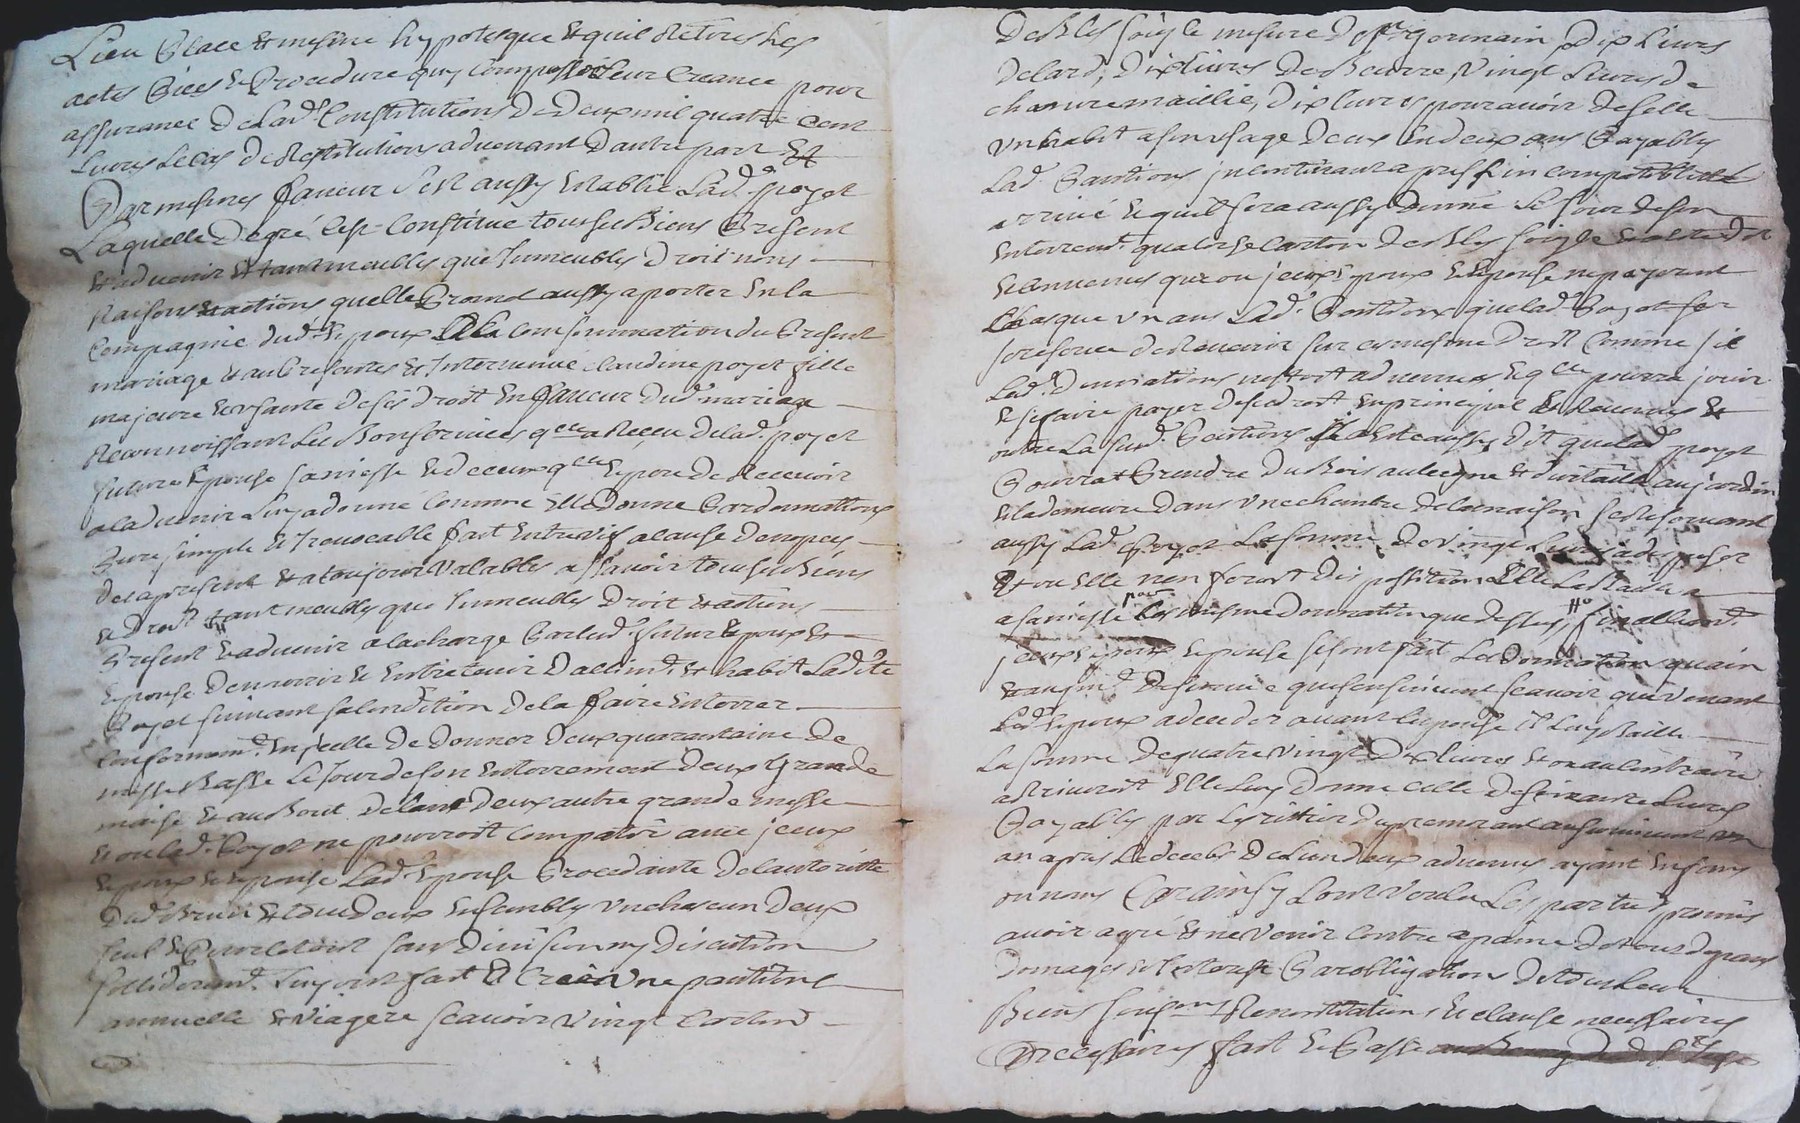 Lieu Place et mesme hypotesque et quil
actes Pieces et Procedure quy Compossent leur Creance pour
assurance de Lad.e Constitutions de deux mil quatre Cent
Livres Le Cas de Restitutions advenant dautre part Et
Par mesmes faveur sest aussy Establie Lad.e poyet
Laquelle degré sest Constitue tous ses Biens Present
et advenir Et tant meubles que Immeubles droit noms
Raisons et actions quelle Promet aussy aporter En la
Compagnie dud.t Epoux a la Consommation du Present
mariage et au Presentes Est Intervenue Claudine poyet fille
majeure et usante de ses droit En faveur dud.t mariage
Reconnoissant Les Bons services qelle a Receu de lad.e poyet
future Epouse sa niesse et de ceux qelle Espere de Recevoir
a ladvenir Luy a donne Comme Elle donne Par donnations
Pure simple et Irrevocable fait Entre vif a cause de nopces
des a present et a toujours valables assavoir tous ses Biens
et droit tant meubles que Immeubles droit et actions
Present et advenir a la charge Par led.t futur Epoux et
Epouse de nourrir et Entretenir dalim.t et habit Ladite
Poyet suivant sa Condition de la faire Enterrer
Conformem.t En icelle de donner deux quarantaine de
messe Basse Le Jour de son Enterrement deux Grande
messe et au Bout de lant deux autre grande messe
et ou lad.e Poyet ne pourroit Compatir avec jceux
Epoux et Epouse Lad.e Epouse Procedante de lautoritte
dud. et tous deux Ensembles un chascun deux
seul et Pour le tout sans division ny discution
sollidairem.t Luy ont fait et Créé Une pantions
annuelle et Viagere scavoir vingt Carton
de Bles soigle mesure de St Germain dix Livres
de lard, dix livres de Beurre Vingt Livres de
chanvre maillie, dix livres pour avoir de selle
un habit a son usage de eux En deux ans Payables
Lad.e Pantions jncontinant apres Lincompatibilité
arrivé Et quil sera aussy donne Le Jour de son
Enterrem.t quatorze Carton de Bles soigle
Et Convenus que ou jceux Epoux et Epouse ne payeront
Chasque un ans Lad.e Pantions que lad.e Poyet se
se reserve de Revenir sur ce mesme droit Comme si
Lad.e donnations nestoit advenue Et qelle pourra jouir
Et se faire payer de ses droit En principal Et Revenus Et
outre La sud.e Pantions Il a Esté aussy dit que lad.e poyet
Pourrat Prendre du Bois au et au jardin
Et la demeure dans une chambre de la maison se Reservant
aussy Lad.e Poyet La somme de vingt Livres a disposer
Et ou Elle nen feroit dispossition Elle
a sa niesse pour Les mesme donnation que dessus finallem.t
jceux Epoux Epouse se sont fait La donnation quain
et augm.t de survie que sensuivent scavoir que venant
Led.t Epoux a deceder avant Lepouse Il Luy Baille
La somme de quatre Vingt dix livres Et ou au Contraire
arriveroit Elle Luy donne celle de soixante Livres
Payables par Les ritier du premourant au survivant un
an apres Le deceds de Lun deux advenus ayant Enfans
ou nom Car ainsy Lont Voulu Les partie promis
avoir agré et ne Venir Contre a paine de tous depans
domages et Interest Par obligations de tous Leurs
Biens soub.ons Renontiation, Et clause necessaires
Necessaires fait Et Passé